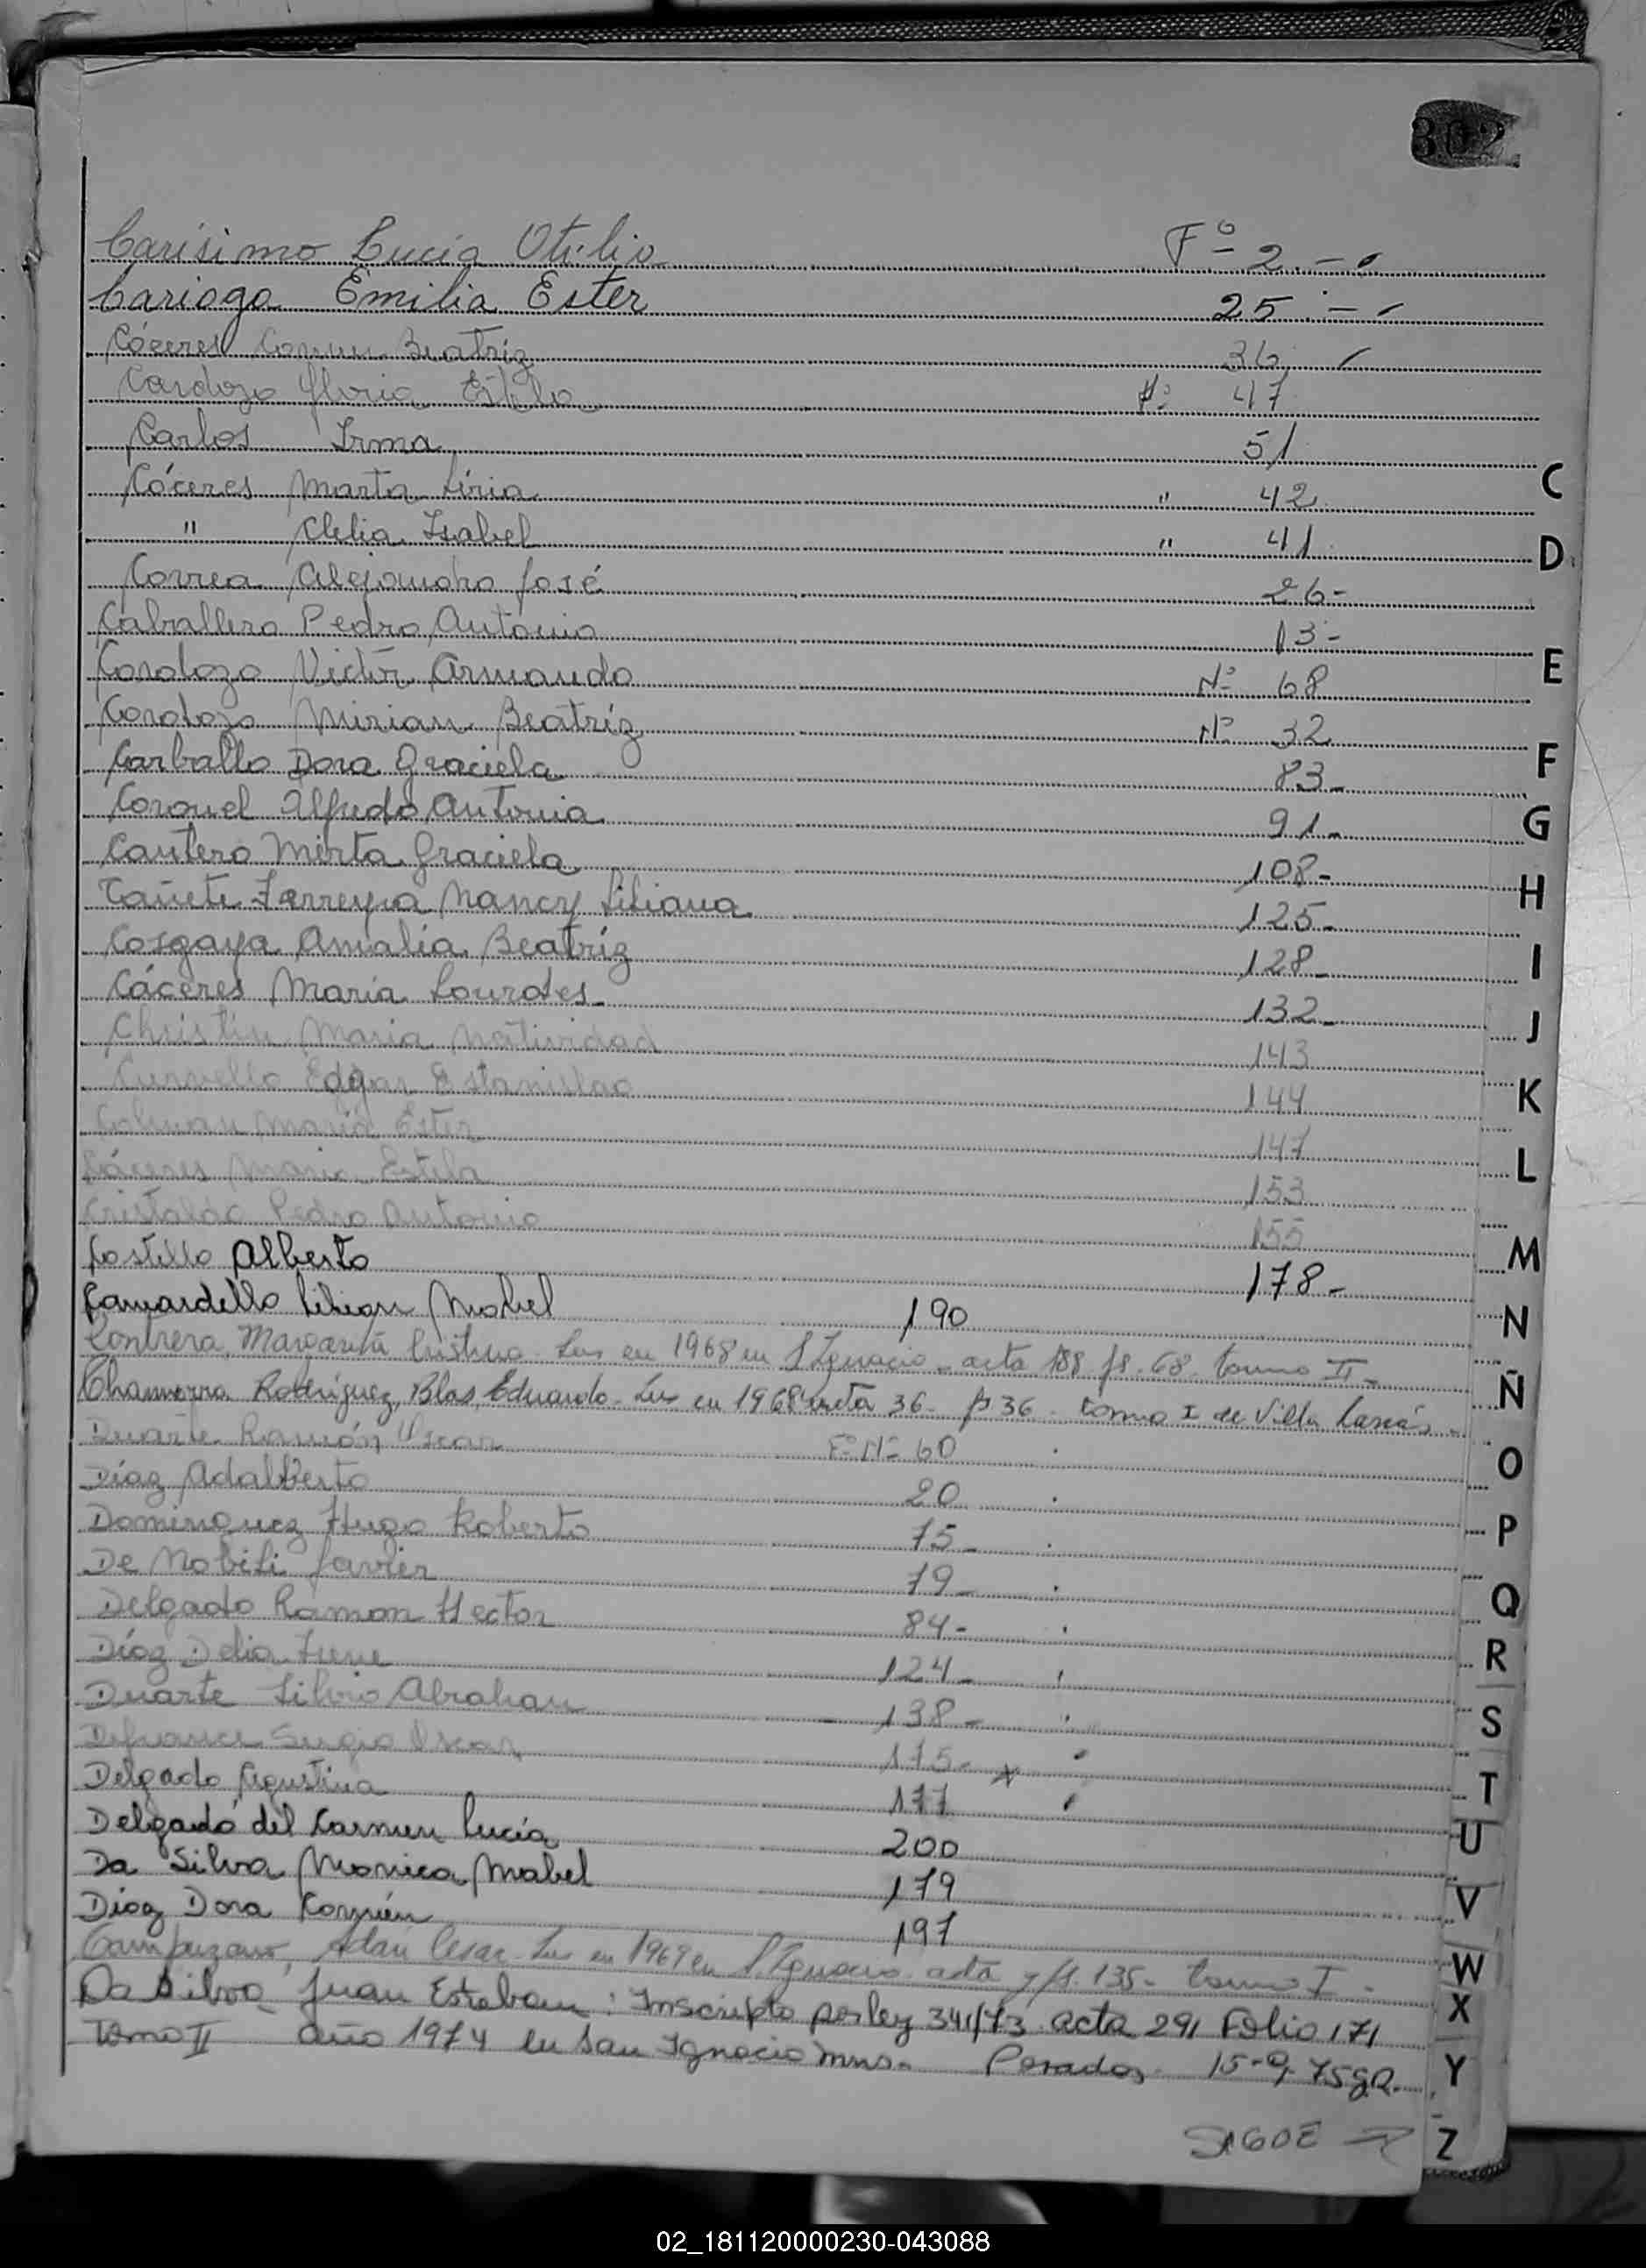 302
Carísimo Lucía Otilia Fº 2.-
Cariaga Emilia Ester 25.-
Cáceres Carmen Beatriz 36
Cardozo Gloria Estela Nº 47
Carlos Irma 51
Cáceres Marta Liria " 42
" Clelia Isabel " 41
Correa Alejandro José 26-
Caballero Pedro Antonio 13-
Cardozo Victor Armando Nº 68
Cardozo Mirian Beatriz Nº 32
Carballo Dora Graciela 83-
Coronel Alfredo Antonio 91-
Cantero Mirta Graciela 108-
Cañete Ferreyra Nancy Liliana 125-
Cosgaya Amalia Beatriz 128-
Cáceres María Lourdes 132-
Christin Maria Natividad 143
Curvello Edgar Estanislao 144
Colman María Ester 147
Cáceres Maria Estela 153
Cristaldo Pedro Antonio 155
Costillo Alberto 178-
Camardello Lilian Mabel 190
Contrera, Margarita Cristina - Ins en 1968 en S Ignacio - acta 188 fs. 68 - tomo II -
Chamorro Rodriguez, Blas Eduardo - Ins en 1968 acta 36 - fs 36 - tomo I de Villa
Duarte Ramón Oscar Fº Nº 60
Díaz Adalberto 20
Dominguez Hugo Roberto 75-
De Nobili Javier 79-
Delgado Ramon Hector 84-
Díaz Delia Irene 124-
Duarte Silvio Abraham 138-
Defrance Sergio Oscar 175-
Delgado Agustina 177
Delgado del Carmen Lucía 200
Da Silva Monica Mabel 179
Díaz Dora Carmen 197
Campuzano, Adan Cesar Ins en 1969 en S. Ignacio - acta y fs. 135 - tomo I -
Da Silva Juan Esteban: Inscripto por ley 341/73 acta 291 Folio 171
Tomo II año 1974 en San Ignacio Mnes. Posadas 15-9-75
SIGUE →
C
D
E
F
G
H
I
J
K
L
M
N
Ñ
O
P
Q
R
S
T
U
V
W
X
Y
Z
02_181120000230-043088